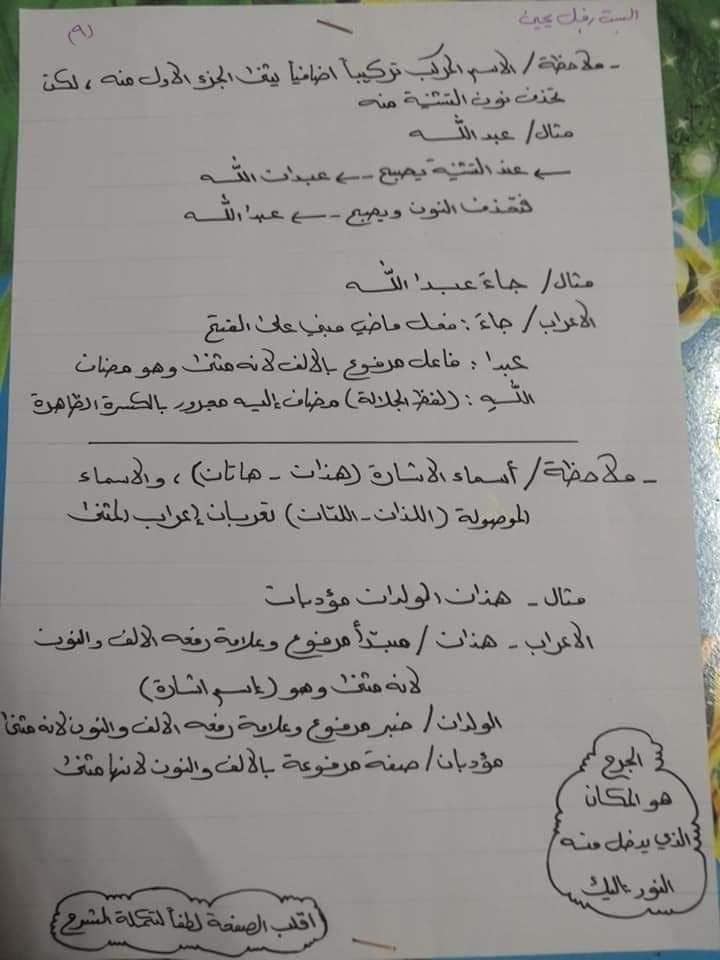 الست رفل يحيى
(٩
- ملاحظة / الاسم المركب تركيباً اضافياً يثنى الجزء الاول منه ، لكن
تحذف نون التثنية منه
مثال / عبد اللّٰه
← عند التثنية يصبح ← عبدان اللّٰه
فتحذف النون ويصبح ← عبدا اللّٰه
مثال / جاءَ عبدا اللّٰه
الاعراب / جاءَ : فعل ماضي مبني على الفتح
عبدا : فاعل مرفوع بالالف لانه مثنى وهو مضاف
اللّٰهِ : (لفظ الجلالة) مضاف إليه مجرور بالكسرة الظاهرة
- ملاحظة / أسماء الاشارة (هذان - هاتان) ، والاسماء
الموصولة (اللذان - اللتان) تعربان إعراب المثنى
مثال - هذان الولدان مؤدبان
الاعراب - هذان / مبتدأ مرفوع وعلامة رفعه الالف والنون
لانه مثنى وهو (إسم اشارة)
الولدان / خبر مرفوع وعلامة رفعه الالف والنون لانه مثنى
مؤدبان / صفة مرفوعة بالالف والنون لانها مثنى
الجرح
هو المكان
الذي يدخل منه
النور إليك
اقلب الصفحة لطفاً لتكملة الشرح